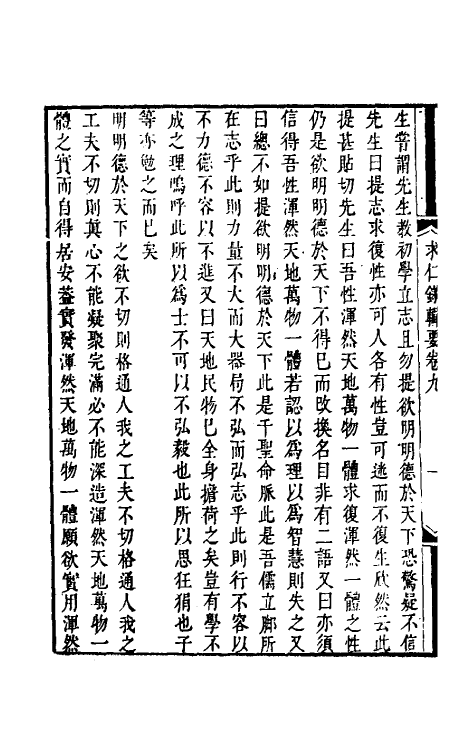 求仁錄輯要卷九
一
生嘗謂先生教初學立志且勿提欲明明德於天下恐驚疑不信
先生曰提志求復性亦可人各有性豈可逃而不復生欣然云此
提甚貼切先生曰吾性渾然天地萬物一體求復渾然一體之性
仍是欲明明德於天下不得已而改換名目非有二語又曰亦須
信得吾性渾然天地萬物一體若認以爲理以爲智慧則失之又
曰總不如提欲明明德於天下此是千聖命脈此是吾儒立腳所
在志乎此則力量不大而大器局不弘而弘志乎此則行不容以
不力德不容以不進又曰天地民物已全身擔荷之矣豈有學不
成之理嗚呼此所以爲士不可以不弘毅也此所以思狂狷也子
等亦勉之而已矣
明明德於天下之欲不切則格通人我之工夫不切格通人我之
工夫不切則眞心不能凝聚完滿必不能深造渾然天地萬物一
體之實而自得居安蓋實發渾然天地萬物一體願欲實用渾然